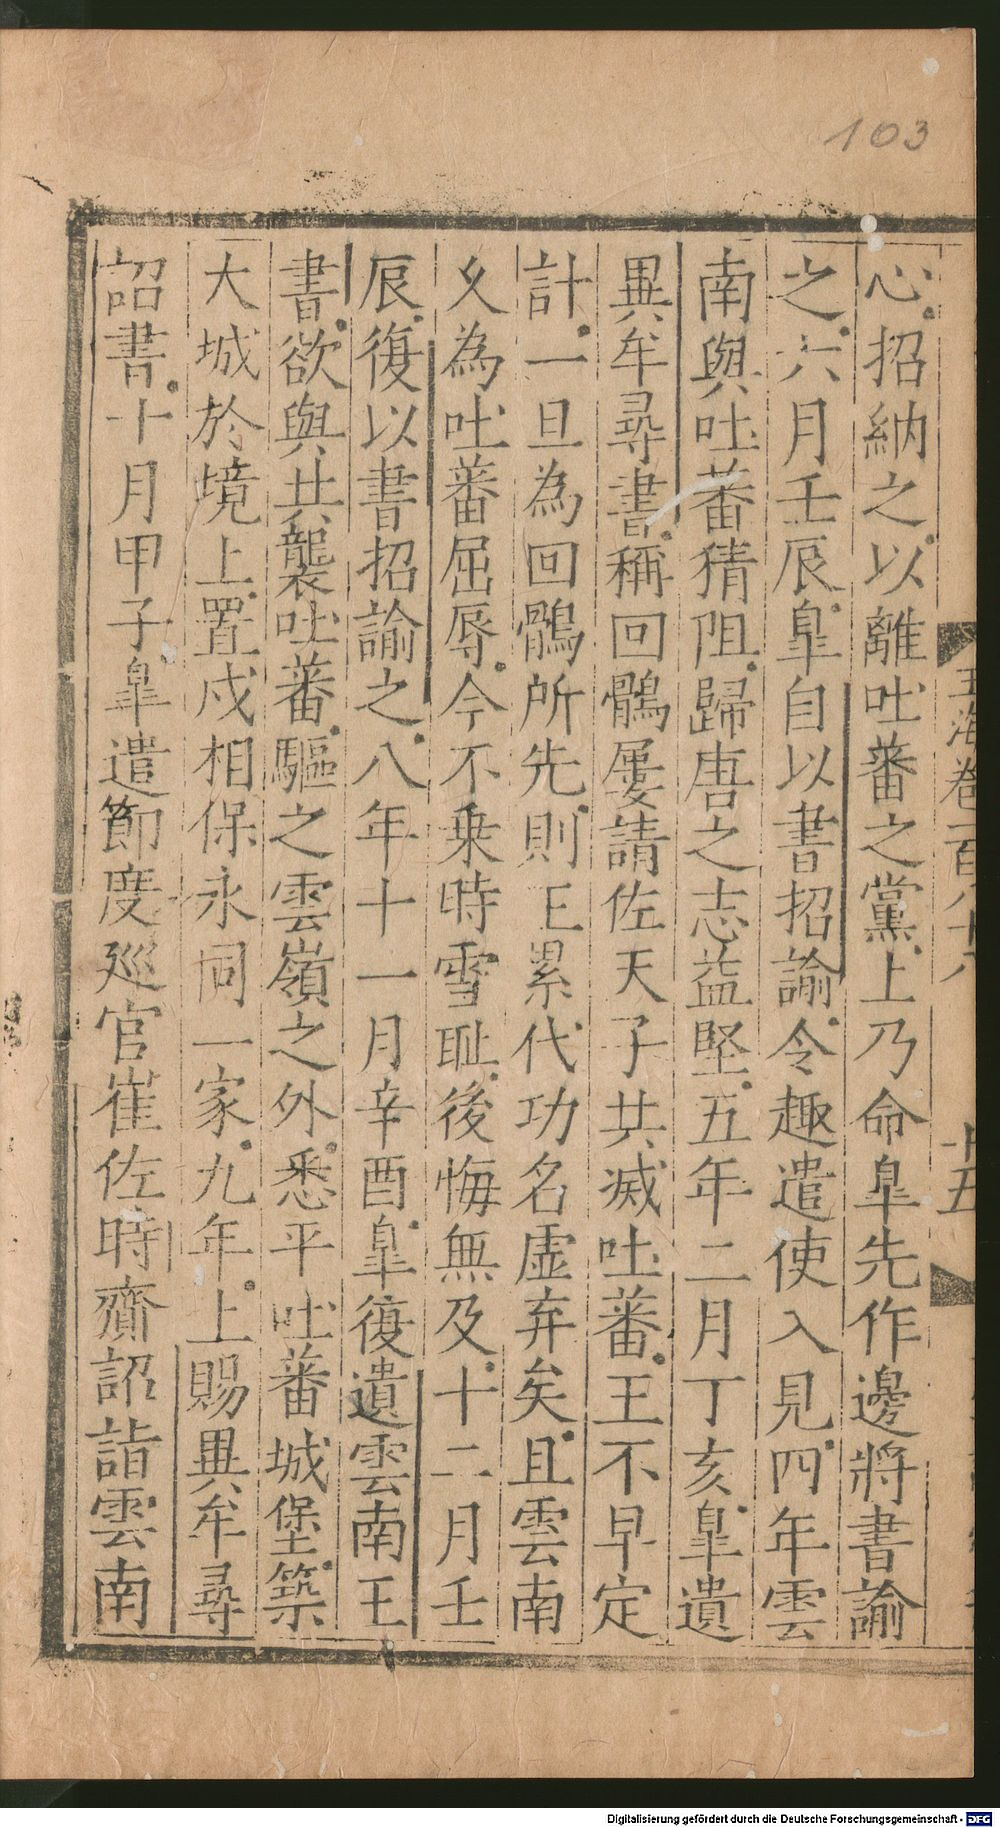 103
玉海卷一百八十八
十五
心招納之以離吐蕃之黨上乃命皐先作邊將書諭
之六月壬辰皐自以書招諭令趣遣使入見四年雲
南與吐蕃猜阻歸唐之志益堅五年二月丁亥皐遺
異牟尋書稱回鶻屢請佐天子共滅吐蕃王不早定
計一旦為回鶻所先則王累代功名虚弃矣且雲南
久為吐蕃屈辱今不乗時雪耻後悔無及十二月壬
辰復以書招諭之八年十一月辛酉皐復遺雲南王
書欲與共襲吐蕃驅之雲嶺之外悉平吐蕃城堡築
大城於境上置戍相保永同一家九年上賜異牟尋
詔書十月甲子皐遣節度廵官崔佐時齎詔詣雲南
Digitalisierung gefördert durch die Deutsche Forschungsgemeinschaft - DFG